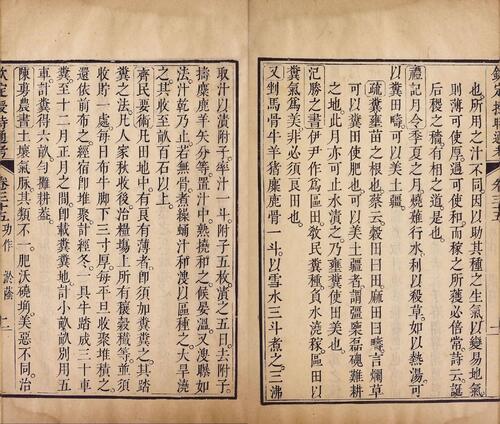 也所用之汁不同因以助其種之生氣以變易地氣
則薄可使厚過可使和而稼之所獲必倍常詩云誕
后稷之穡有相之道是也
禮記月令季夏之月燒薙行水利以殺草如以熱湯可
以糞田疇可以美土疆
疏糞壅苗之根也蔡云穀田曰田麻田曰疇言爛草
可以糞田使肥也可以美土疆者謂疆㯺磊磈難耕
之地此月亦可止水漬之乃壅糞使田美也
氾勝之書伊尹作為區田敎民糞種負水澆稼區田以
糞氣為美非必須良田也
又剉馬骨牛羊猪麋鹿骨一斗以雪水三斗煮之三沸
取汁以漬附子率汁一斗附子五枚漬之五日去附子
擣麋鹿羊矢分等置汁中熟撓和之候晏溫又溲聯如
法汁乾乃止若無骨者繰蛹汁和溲以區種之大旱澆
之其收至畝百石以上
齊民要術凡田地中有良有薄者即須加糞糞之其踏
糞之法凡人家秋收後治糧塲上所有穰穀穖等並須
收貯一處每日布牛脚下三寸厚每平旦收聚堆積之
還依前布之經宿卽堆聚計經冬一具牛踏成三十車
糞至十二月正月之間卽載糞糞地計小畝畝別用五
車計糞得六畝勻攤耕蓋
陳旉農書土壤氣脈其類不一肥沃磽埆美惡不同治
欽定授時通考
卷三十五
功作
淤蔭